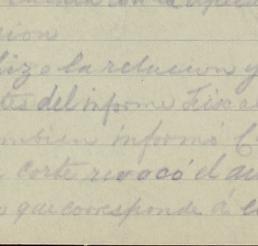 cion
hizo la relacion y
tes del informe Fisca
mbien informó C
corte revocó el au
que corresponde á